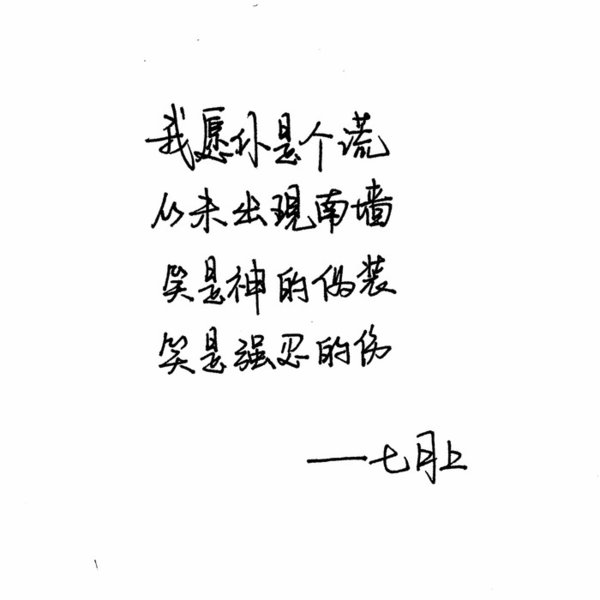 我愿你是个谎
从未出现南墙
笑是神的伪装
笑是强忍的伤
——七月上